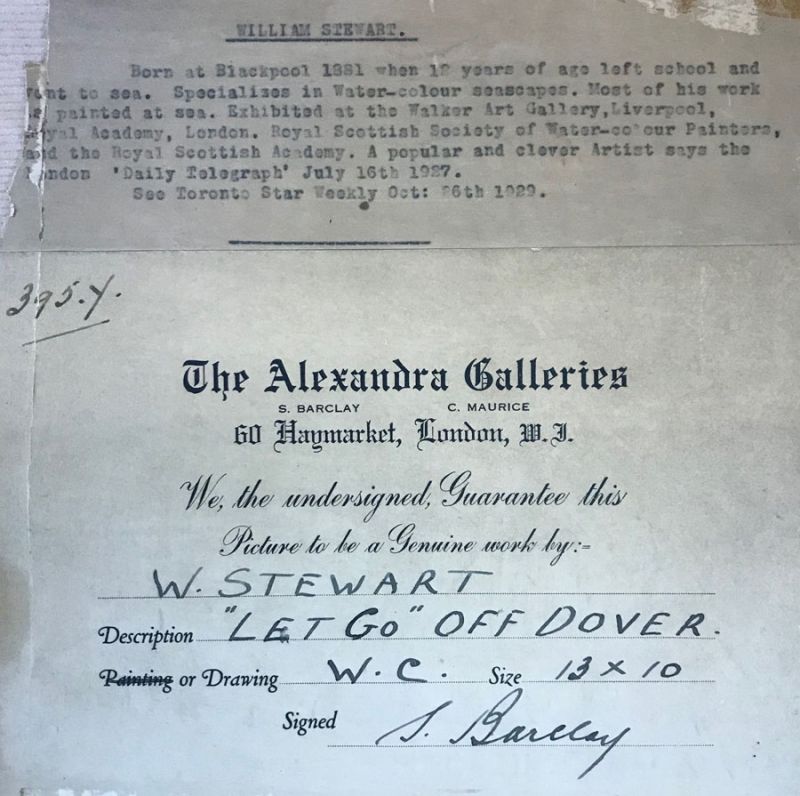 WILLIAM STEWART.
Born at Blackpool 1881 when 12 years of age left school and
went to sea. Specializes in Water-colour seascapes. Most of his work
is painted at sea. Exhibited at the Walker Art Gallery,Liverpool,
Royal Academy, London. Royal Scottish Society of Water-colour Painters,
and the Royal Scottish Academy. A popular and clever Artist says the
London 'Daily Telegraph' July 16th 1927.
See Toronto Star Weekly Oct: 26th 1929.
395.Y.
The Alexandra Galleries
S. BARCLAY C. MAURICE
60 Haymarket, London, W.I.
We, the undersigned, Guarantee this
Picture to be a Genuine work by:-
W. STEWART
Description "LET GO" OFF DOVER.
Painting or Drawing W.C. Size 13 x 10
Signed S. Barclay